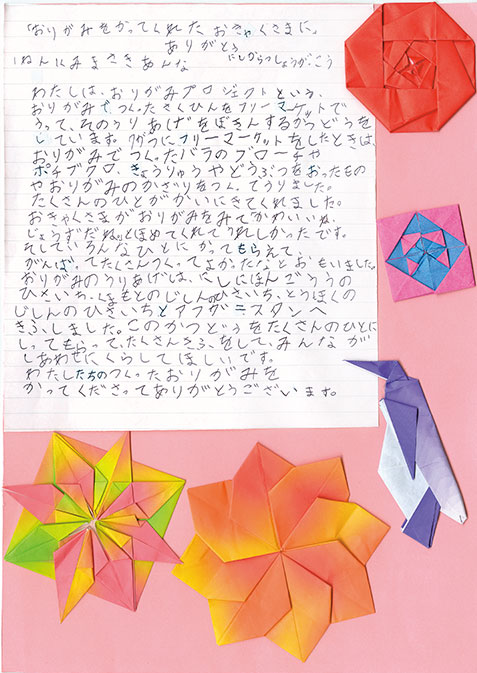 「おりがみをかってくれたおきゃくさまに。
ありがとう
1ねん にみまさきあんな にしがらっしょうがっこう
わたしは、おりがみプロジェクトという、
おりがみでつくったさくひんをフリーマーケットで
うって、そのうりあげをぼきんするかつどうを
しています。7がつにフリーマーケットをしたときは、
おりがみでつくったバラのブローチや
ポチブクロ、きょうりゅうやどうぶつをおったもの
やおりがみのかざりをつくってうりました。
たくさんのひとがかいにきてくれました。
おきゃくさまがおりがみをみてかわいいね、
じょうずだねっとほめてくれてうれしかったです。
そしていろんなひとにかってもらえて、
がんばってたくさんつくってよかったなとおもいました。
おりがみのうりあげは、にしにほんごううの
ひさいち、くまもとのじしんのひさいち、とうほくの
じしんのひさいちとアフガニスタンへ
きふしました。このかつどうをたくさんのひとに
しってもらって、たくさんきふをして、みんなが
しあわせにくらしてほしいです。
わたしたちのつくったおりがみを
かってくださってありがとうございます。